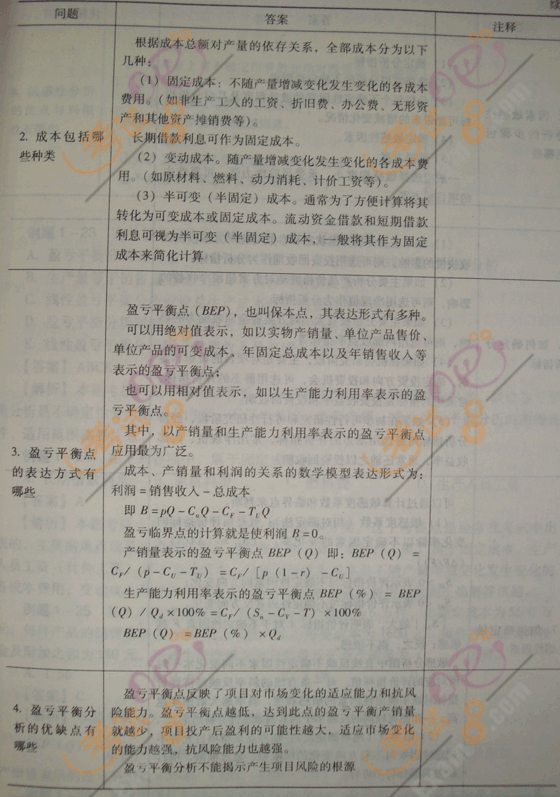 续
问题
答案
注释
2. 成本包括哪
些种类
根据成本总额对产量的依存关系，全部成本分为以下
几种：
（1）固定成本：不随产量增减变化发生变化的各成本
费用。（如非生产工人的工资、折旧费、办公费、无形资
产和其他资产摊销费等）。
长期借款利息可作为固定成本。
（2）变动成本。随产量增减变化发生变化的各成本费
用。（如原材料、燃料、动力消耗、计价工资等）。
（3）半可变（半固定）成本。通常为了方便计算将其
转化为可变成本或固定成本。流动资金借款和短期借款
利息可视为半可变（半固定）成本，一般将其作为固定
成本来简化计算
3. 盈亏平衡点
的表达方式有
哪些
盈亏平衡点（BEP），也叫保本点，其表达形式有多种。
可以用绝对值表示，如以实物产销量、单位产品售价、
单位产品的可变成本、年固定总成本以及年销售收入等
表示的盈亏平衡点；
也可以用相对值表示，如以生产能力利用率表示的盈
亏平衡点。
其中，以产销量和生产能力利用率表示的盈亏平衡点
应用最为广泛。
成本、产销量和利润的关系的数学模型表达形式为：
利润＝销售收入－总成本
即 B＝pQ－CuQ－CF－TUQ
盈亏临界点的计算就是使利润 B＝0。
产销量表示的盈亏平衡点 BEP（Q）即：BEP（Q）＝
CF/（p－CU－TU）＝CF/［p（1－r）－CU］
生产能力利用率表示的盈亏平衡点 BEP（%）＝BEP
（Q）/Qd×100%＝CF/（Sn－CV－T）×100%
BEP（Q）＝BEP（%）×Qd
4. 盈亏平衡分
析的优缺点有
哪些
盈亏平衡点反映了项目对市场变化的适应能力和抗风
险能力。盈亏平衡点越低，达到此点的盈亏平衡产销量
就越少，项目投产后盈利的可能性越大，适应市场变化
的能力越强，抗风险能力也越强。
盈亏平衡分析不能揭示产生项目风险的根源